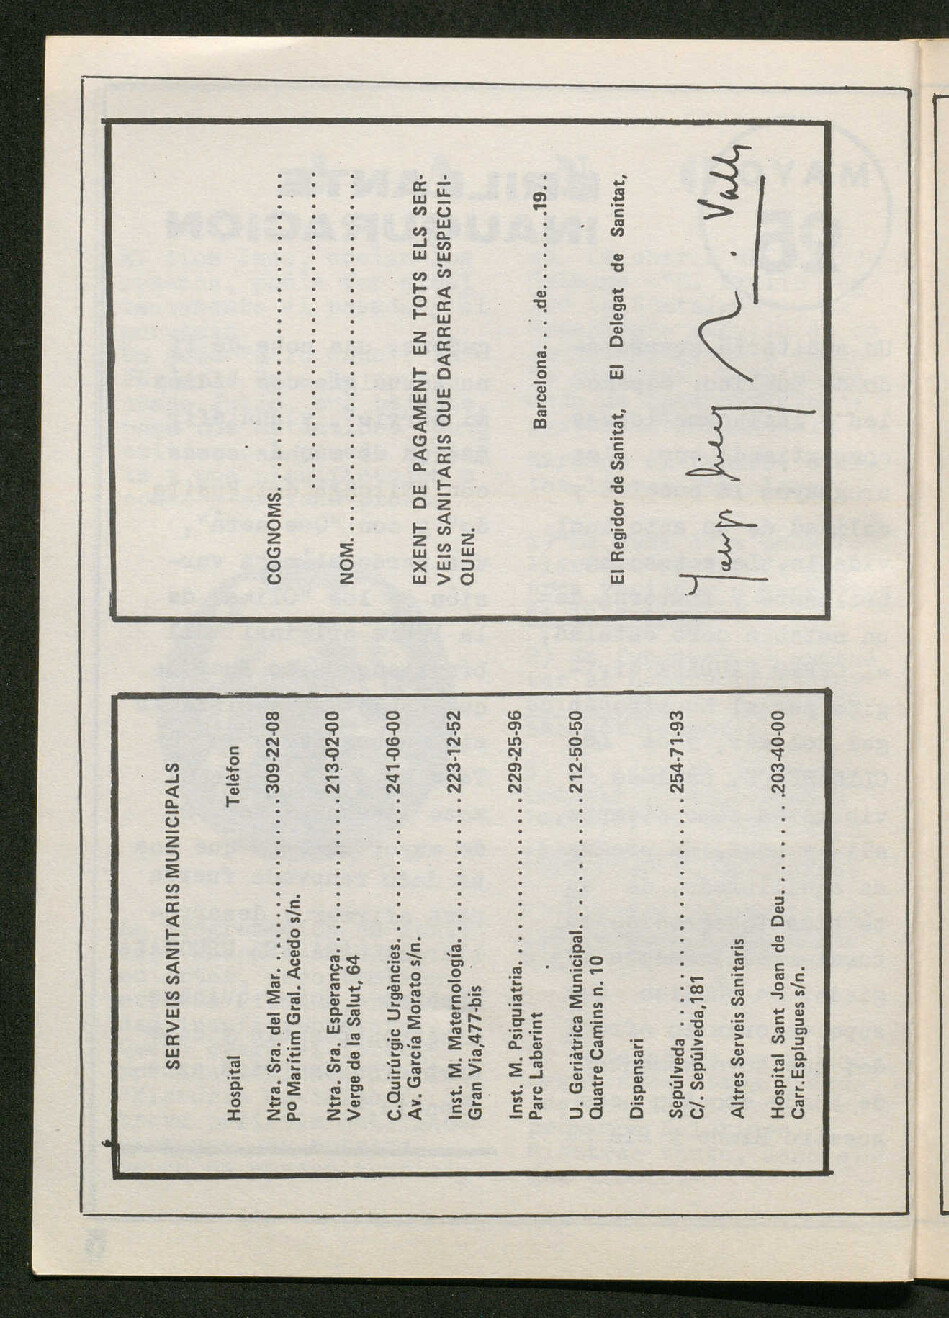 SERVEIS SANITARIS MUNICIPALS
Hospital Telèfon
Ntra. Sra. del Mar................ 309-22-08
Pº Marítim Gral. Acedo s/n.
Ntra. Sra. Esperança............... 213-02-00
Verge de la Salut, 64
C.Quirúrgic Urgències............... 241-06-00
Av. García Morato s/n.
Inst. M. Maternologia............... 223-12-52
Gran Via,477-bis
Inst. M. Psiquiatria................ 229-25-96
Parc Laberint
U. Geriàtrica Municipal............. 212-50-50
Quatre Camins n. 10
Dispensari
Sepúlveda ..................... 254-71-93
C/. Sepúlveda,181
Altres Serveis Sanitaris
Hospital Sant Joan de Deu........... 203-40-00
Carr. Esplugues s/n.
COGNOMS.................................
NOM.....................................
EXENT DE PAGAMENT EN TOTS ELS SER-
VEIS SANITARIS QUE DARRERA S'ESPECIFI-
QUEN.
Barcelona .....de.......19...
El Regidor de Sanitat, El Delegat de Sanitat,